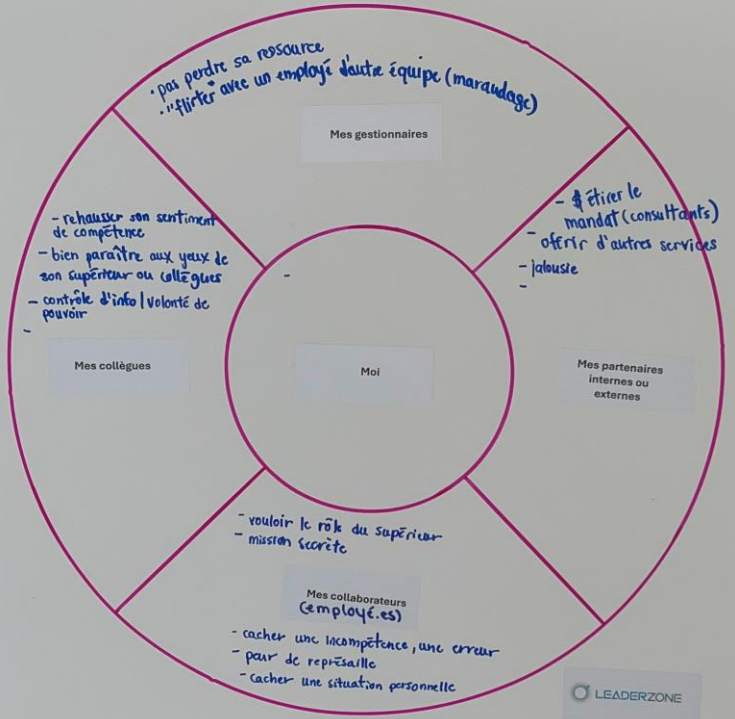 • pas perdre sa ressource
• "flirter" avec un employé d'autre équipe (maraudage)
Mes gestionnaires
- rehausser son sentiment
de compétence
- bien paraître aux yeux de
son supérieur ou collègues
- contrôle d'info/volonté de
pouvoir
-
Mes collègues
-
Moi
- $ étirer le
mandat (consultants)
- offrir d'autres services
- jalousie
-
Mes partenaires
internes ou
externes
- vouloir le rôle du supérieur
- mission secrète
Mes collaborateurs
(employé.es)
- cacher une incompétence, une erreur
- peur de représaille
- cacher une situation personnelle
LEADERZONE